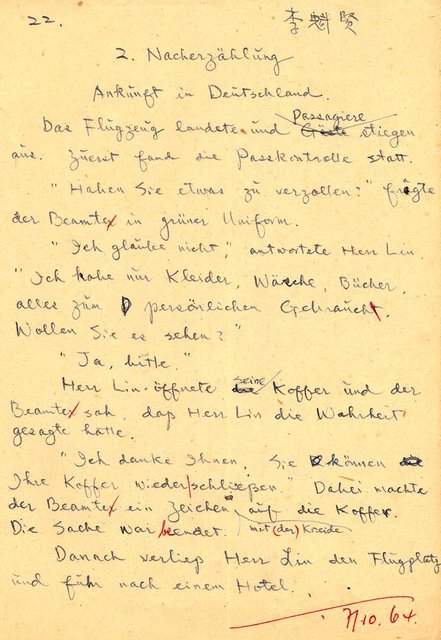 22.
李魁賢
2. Nacherzählung
Ankunft in Deutschland.
Passagiere
Das Flugzeug landete und Gäste stiegen
aus. Zuerst fand die Passkontrolle statt.
"Haben Sie etwas zu verzollen?" frägte
der Beamte in grüner Uniform.
"Ich glaube nicht," antwortete Herr Lin
"Ich habe nur Kleider, Wäsche, Bücher,
alles zum persönlichen Gebrauch.
Wollen Sie es sehen?"
"Ja, bitte."
seine
Herr Lin öffnete die Koffer und der
Beamte sah, daß Herr Lin die Wahrheit
gesagte hatte.
"Ich danke Ihnen. Sie können
Ihre Koffer wieder schließen." Dabei machte
der Beamte ein Zeichen auf die Koffer.
Die Sache war beendet. mit (der) Kreide
Danach verließ Herr Lin den Flugplatz
und fuhr nach einem Hotel.
7/10.64.